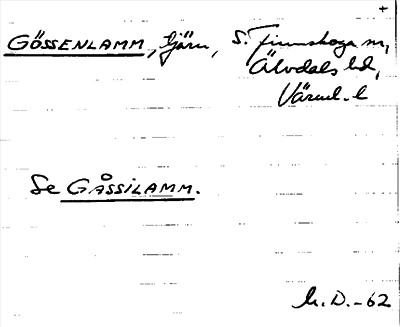 +
GÖSSENLAMM, tjärn, S. Finnskoga sn,
Älvdals hd,
Värml. l
Se GÅSSILAMM.
M. D. -62